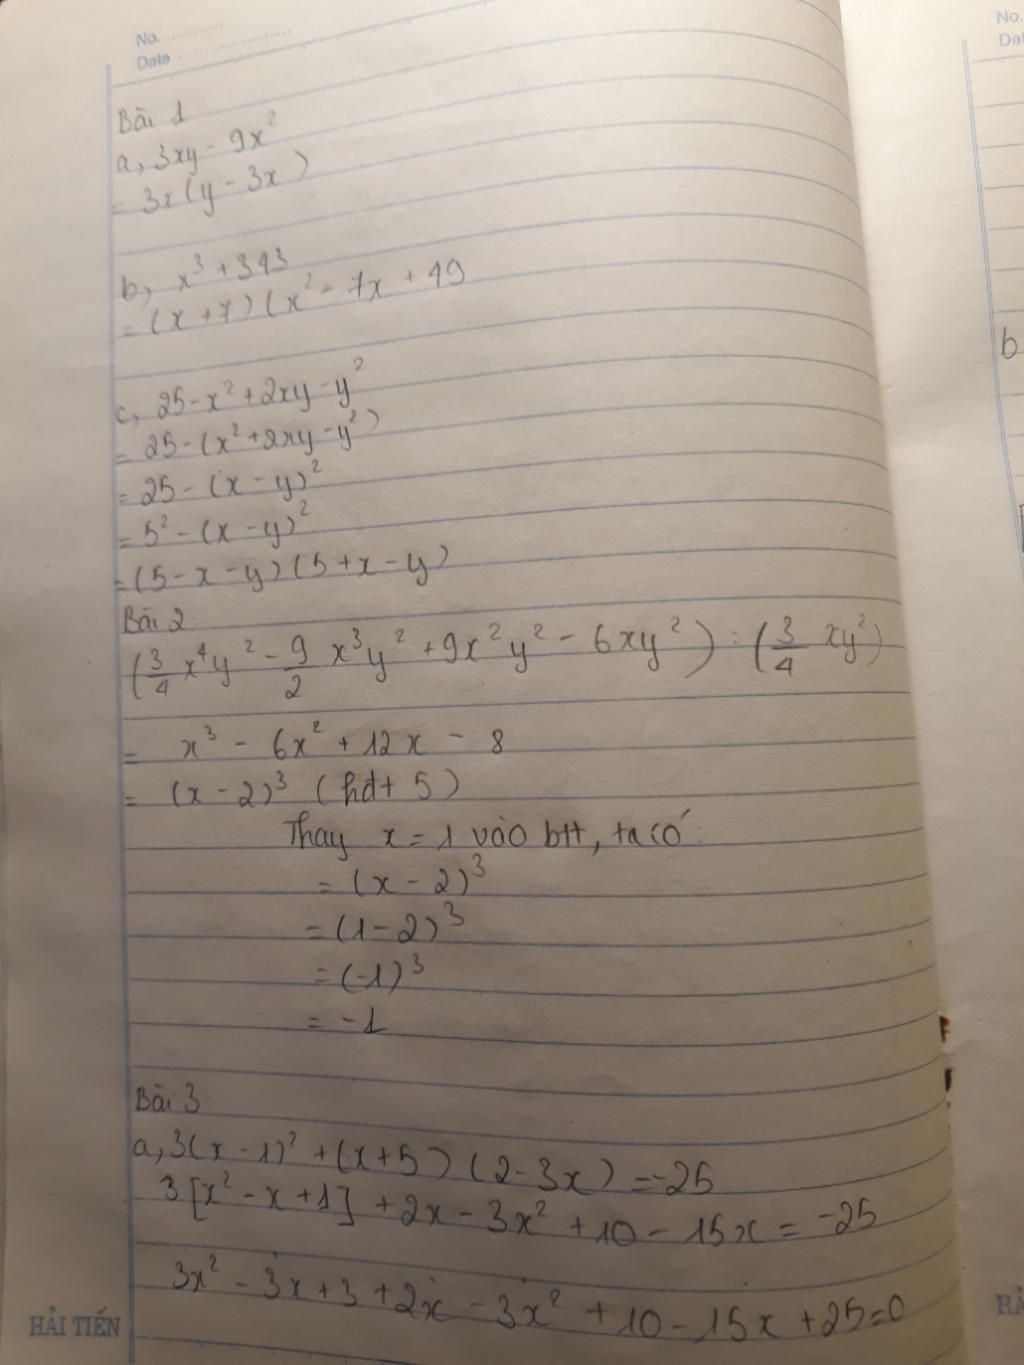 No.
Date
Bài 1
a, 3xy - 9x²
= 3x(y - 3x)
b, x³ + 343
= (x + 7)(x² - 7x + 49
c, 25 - x² + 2xy - y²
= 25 - (x² + 2xy - y²)
= 25 - (x - y)²
= 5² - (x - y)²
= (5 - x - y)(5 + x - y)
Bài 2
(3/4 x⁴y² - 9/2 x³y² + 9x²y² - 6xy²) : (3/4 xy²)
= x³ - 6x² + 12x - 8
= (x - 2)³ (hđt 5)
Thay x = 1 vào btt, ta có:
= (x - 2)³
= (1 - 2)³
= (-1)³
= -1
Bài 3
a, 3(x - 1)² + (x + 5)(2 - 3x) = -25
3[x² - x + 1] + 2x - 3x² + 10 - 15x = -25
3x² - 3x + 3 + 2x - 3x² + 10 - 15x + 25 = 0
HẢI TIẾN
No.
Dat
b
HẢ